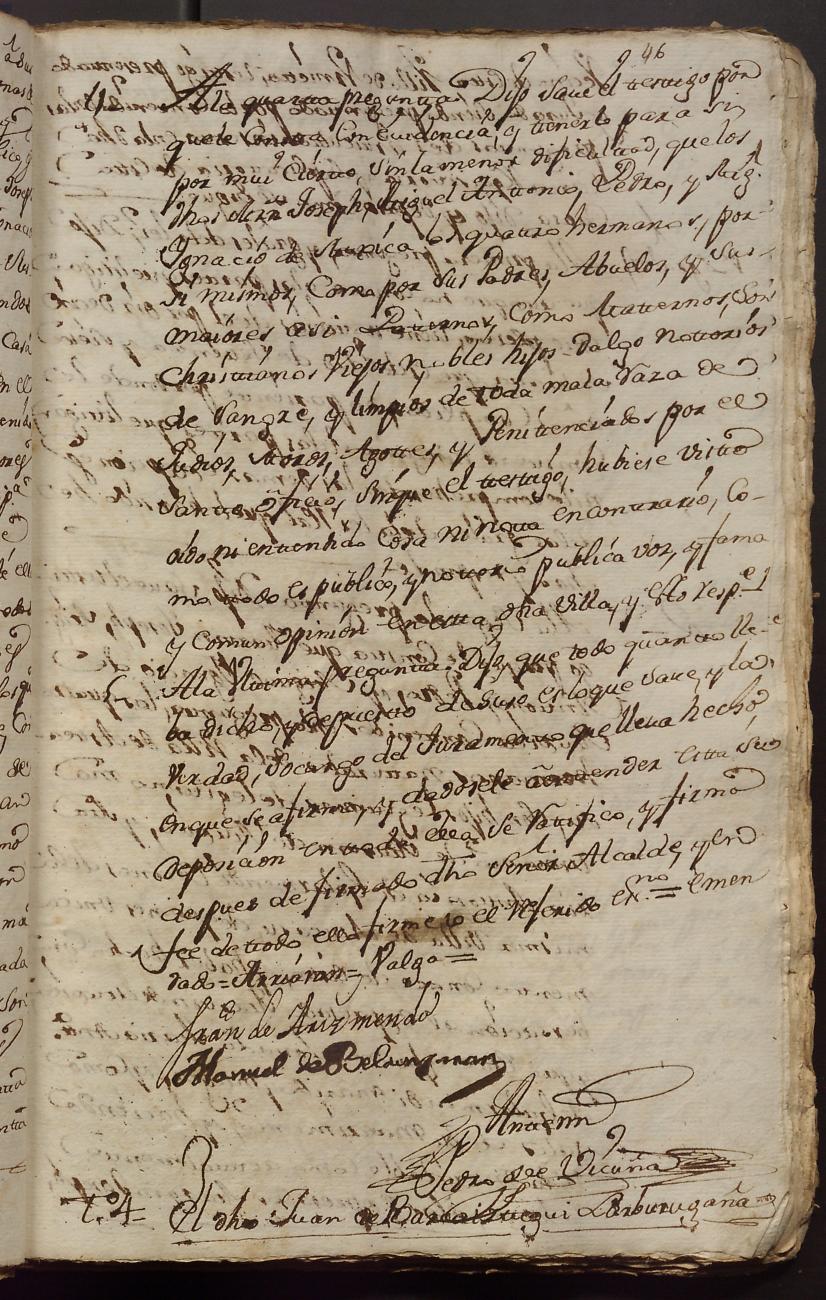 46
4 A la quarta pregunta Dijo Save el testigo por
que le Consta Con evidencia, y tenerlo para si
por mui Cierto, sin la menor dificultad, que los
dhos Juan Joseph, Miguel Antonio, Pedro, y
Ignacio de los quatro hermanos, por
si mismos, Como por sus Padres, Abuelos, y sus
maiores asi Paternos, como Maternos, Son
Christianos Viejos nobles hijos dalgo notorios
de Sangre, y limpios de toda mala Raza de
Judios, Moros, Agotes, y Penitenciados por el
Santo oficio, sin que el testigo, hubiese visto
oido ni entendido Cosa ninguna encontrario, Co-
mo todo es publico, y notorio publica voz, y fama
y Comun Opinion en esta dha Villa, y Esto resp.e
A la Ultima pregunta, Dijo, que todo quanto lle-
ba dicho, y depuesto de suso es lo que Save, y la
Verdad, Socargo del Juramento que lleva hecho
en que se afirmo, y dadosele a entender Esta Su
Deposicion en toda ella se Ratifico, y firmo
despues de firmado dho Señor Alcalde, y en
fee de todo ello firme yo el Referido es.no = Emen
dado = = Valga =
Fran.co de Arizmendi
Manuel de
Antemi
Pedro de Vicuña
t.o 4 = El dho Juan de